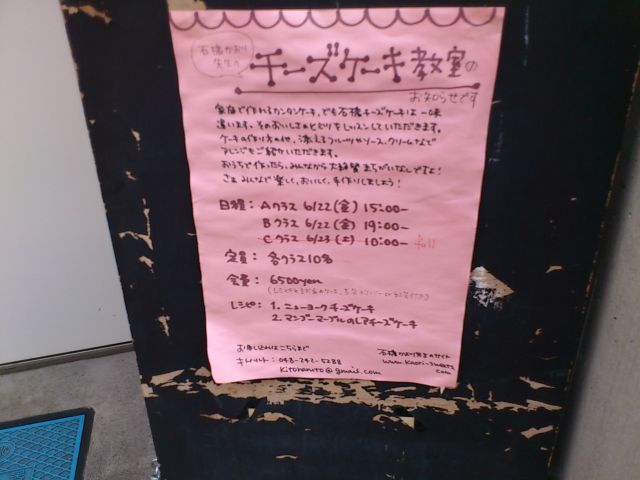 石橋かおり
先生の
チーズケーキ教室の
お知らせです
家庭で作れるカンタンケーキ、でも石橋チーズケーキは一味
違います。そのおいしさのヒミツをレッスンしていただきます。
ケーキの作り方の他、添えるフルーツやソース、クリームなどで
アレンジもご紹介いただきます。
おうちで作ったら、みんなから大絶賛まちがいなしですよ！
さぁ みんなで楽しく、おいしく、手作りしましょう！
日程： Aクラス 6/22（金） 15:00〜
Bクラス 6/22（金） 19:00〜
Cクラス 6/23（土） 10:00〜 full
定員： 各クラス10名
会費： 6500yen
レシピ： 1. ニューヨークチーズケーキ
2. マンゴーマーブルのレアチーズケーキ
お申し込みはこちらまで
048-242-5288
kitohanito@gmail.com
石橋かおり先生のサイト
www.kaori-sweets.
com